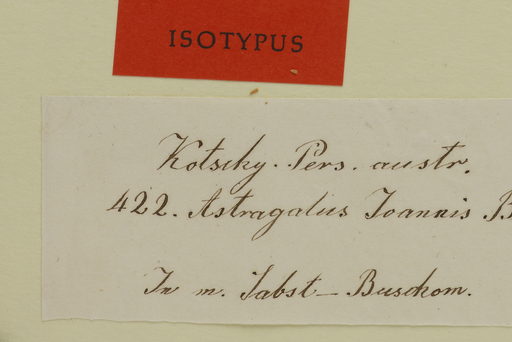 ISOTYPUS
Kotschy. Pers. austr.
422. Astragalus Joannis B
In m. Sabst- Buschom.